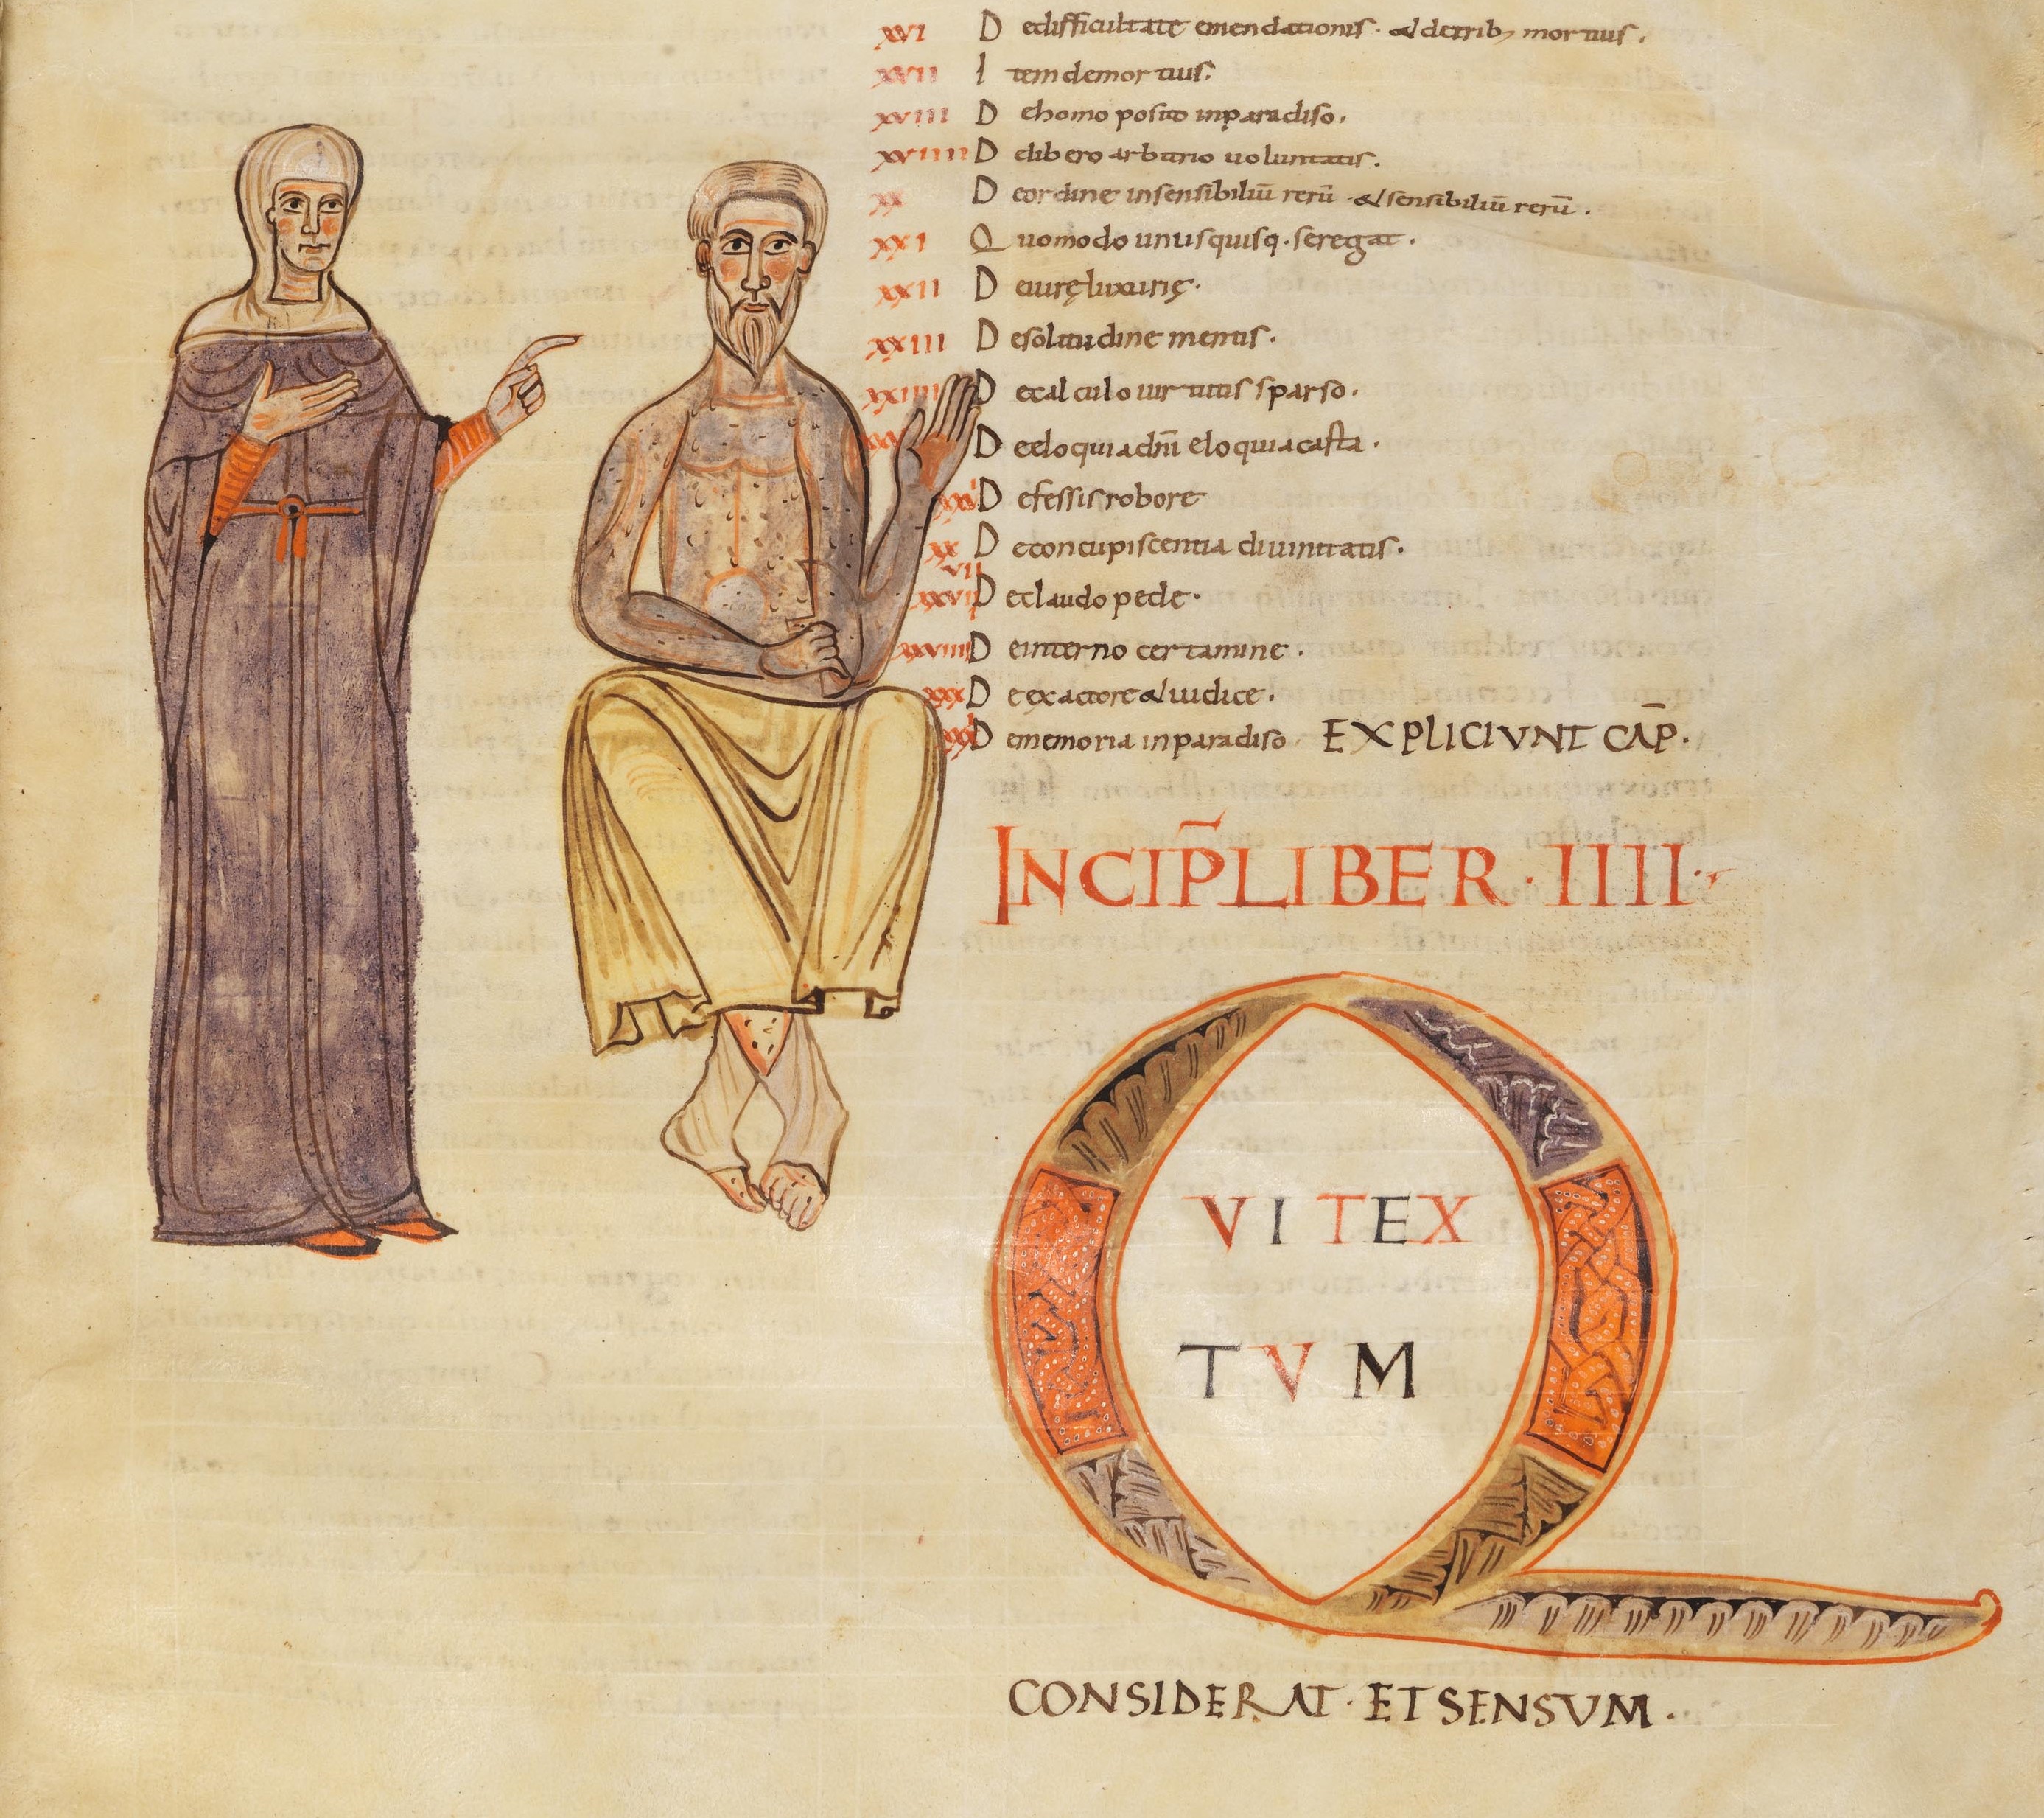 XVI Dedifficultate emendationis · & detrib; mortuis.
XVII Item demortuis.
XVIII Dehomo posito inparadiso.
XVIIII Delibero arbitrio uoluntatis.
XX Deordine insensibiliū rerū · & sensibiliū rerū.
XXI Quomodo unusquisq· seregat.
XXII Deiurę luxurię.
XXIII Desolitudine mentis.
XXIIII Decalculo uirtutis sparso.
Deeloquia dn̄i eloquia casta.
Defessis robore
XXVII Deconcupiscentia diuinitatis.
Declaudo pede.
XXVIIII Deinterno certamine.
XXX Deexactore & iudice.
XXXI Dememoria inparadiso EXPLICIVNT CAP̄.
INCIP̄ LIBER · IIII ·
QVI TEX
TVM
CONSIDERAT · ET SENSVM ·